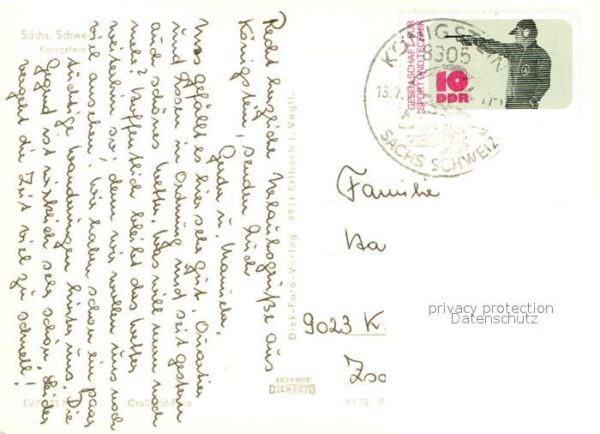 Sächs. Schwe
Königstein
Recht herzliche Urlaubsgrüße aus
Königstein, senden Euch
Gerda u. Manfred.
Uns gefällt es hier sehr gut. Quartier
und Essen in Ordnung und seit gestern
auch schönes Wetter. Was will man noch
mehr? Hoffentlich bleibt das Wetter
weiterhin so, denn wir wollen uns noch
viel ansehen. Wir haben schon ein paar
tüchtige Wanderungen hinter uns. Die
Gegend ist wirklich sehr schön, leider
vergeht die Zeit viel zu schnell!
Dick-Foto-Verlag 9234 Erlbach i. Vogtl.
40 JAHRE
DICKFOTO
KÖNIGSTEIN
8305
13.7.
SÄCHS SCHWEIZ
GESELLSCHAFT FÜR
SPORT UND TECHNIK
10
DDR
Familie
Ha
9023 K.
Zsc
privacy protection
Datenschutz